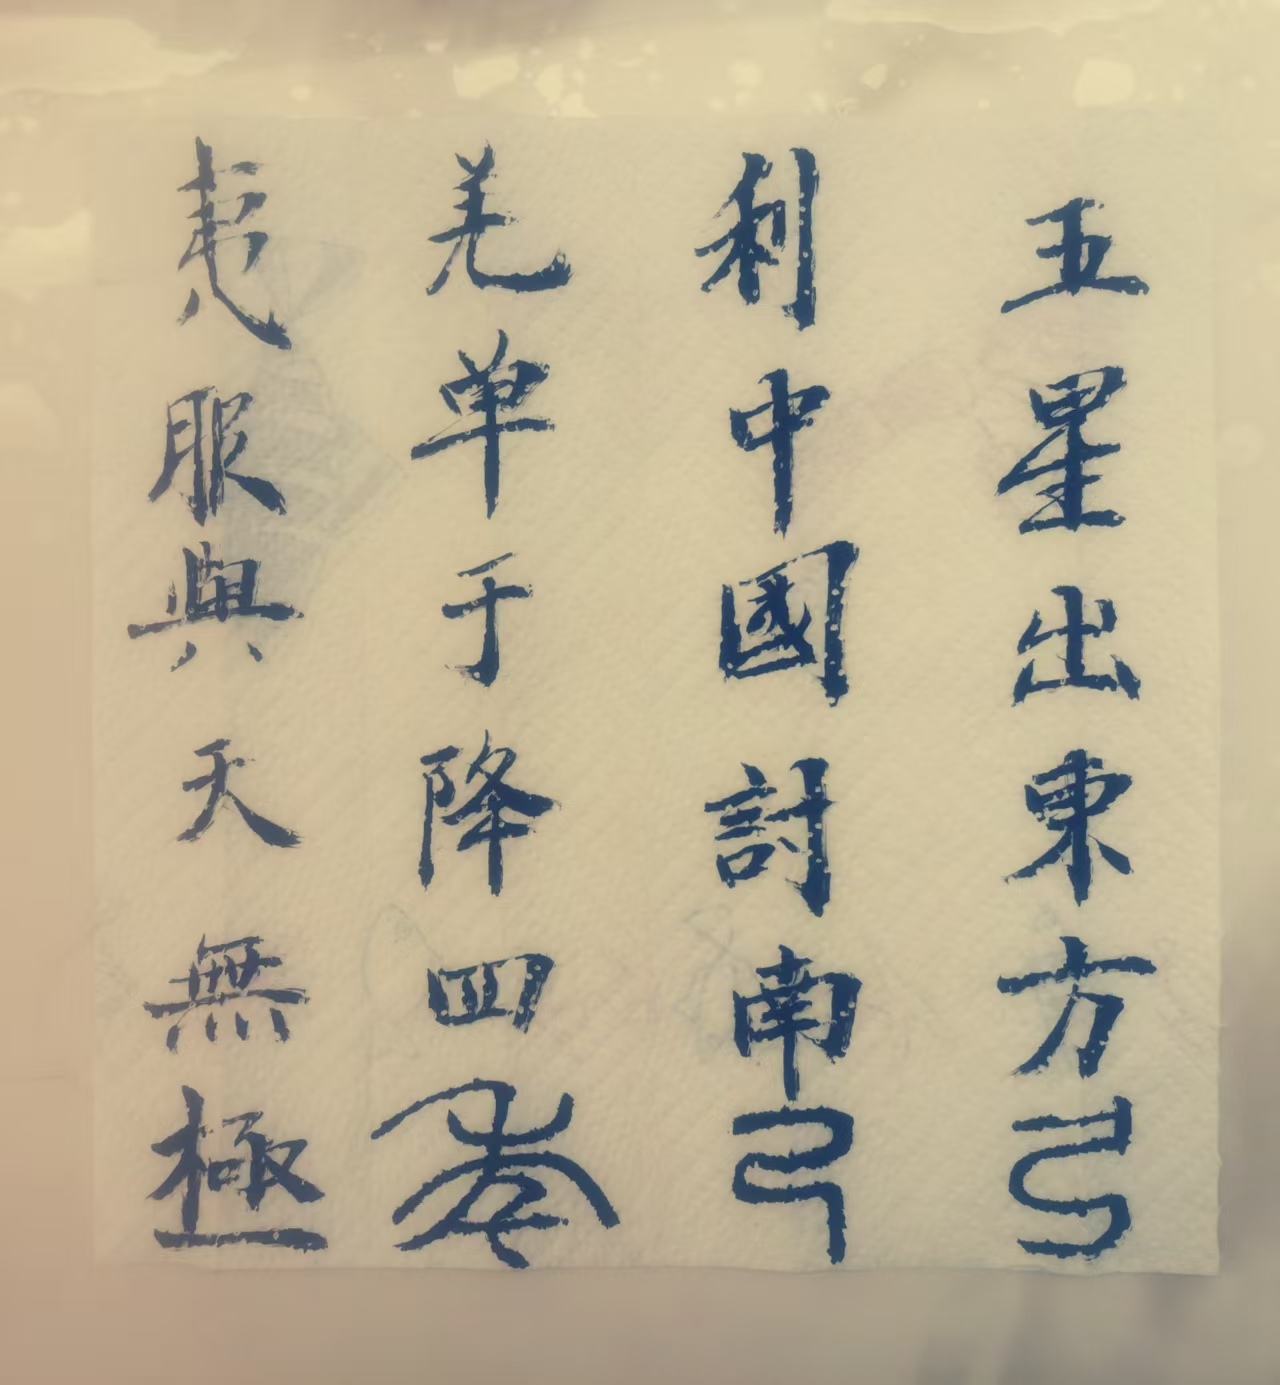 五星出東方
利中國討南
羌单于降四
夷服與天無極